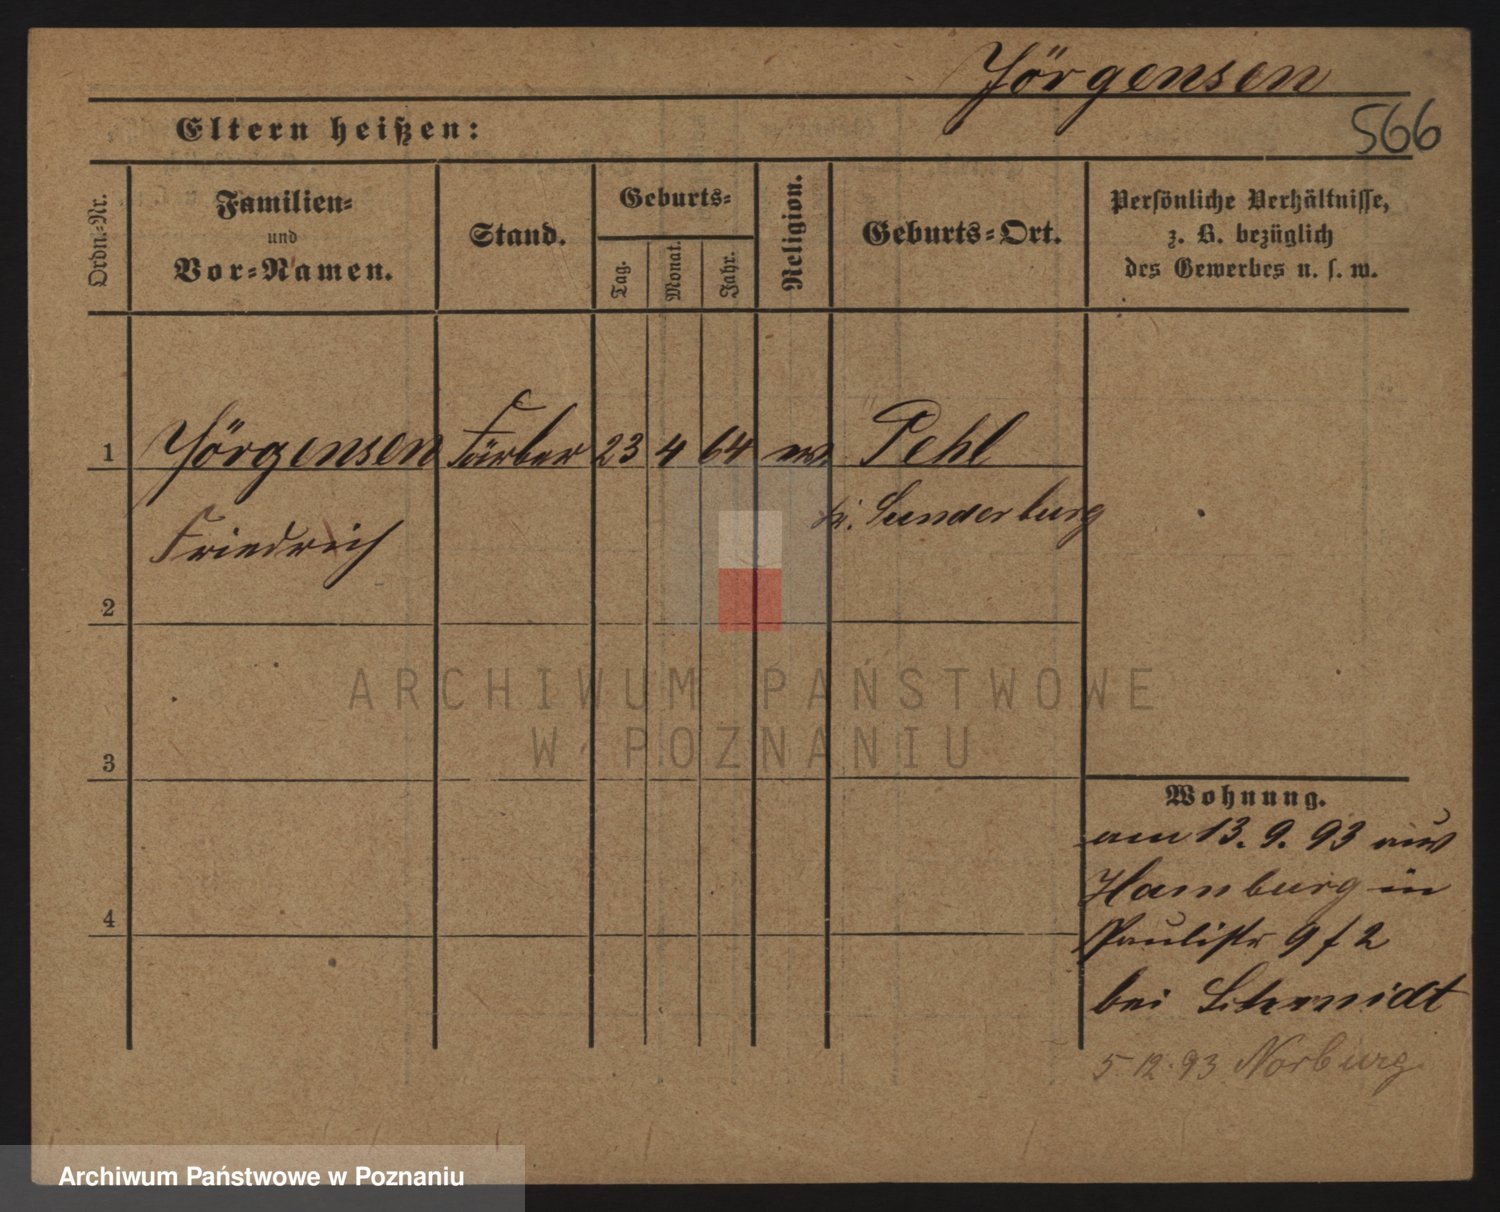 Jörgensen
566
Eltern heißen:
Ordn.-Nr.
Familien-
und
Vor-Namen.
Stand.
Geburts-
Tag.
Monat.
Jahr.
Religion.
Geburts-Ort.
Persönliche Verhältnisse,
z. B. bezüglich
des Gewerbes u. s. w.
1 Jörgensen Färber 23 4 64 ev. Pehl
Kr. Sunderburg
Friedrich
2
3
4
Wohnung.
am 13. 9. 93 aus
Hamburg in
Paulistr 9 f 2
bei Schmidt
5. 12. 93 Norburg
ARCHIWUM PAŃSTWOWE
W POZNANIU
Archiwum Państwowe w Poznaniu